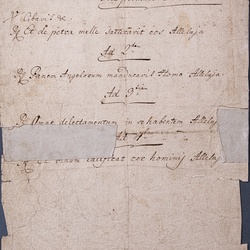 V Cibavit &c.
R Et de petra melle saturavit eos Alleluja
Ad 2dam
R Panem Angelorum manducavit Homo Alleluja.
Ad 3tiam
R Omne delectamentum in se habentem Alleluj
Ad
R Et vinum laetificet cor hominis Alleluj